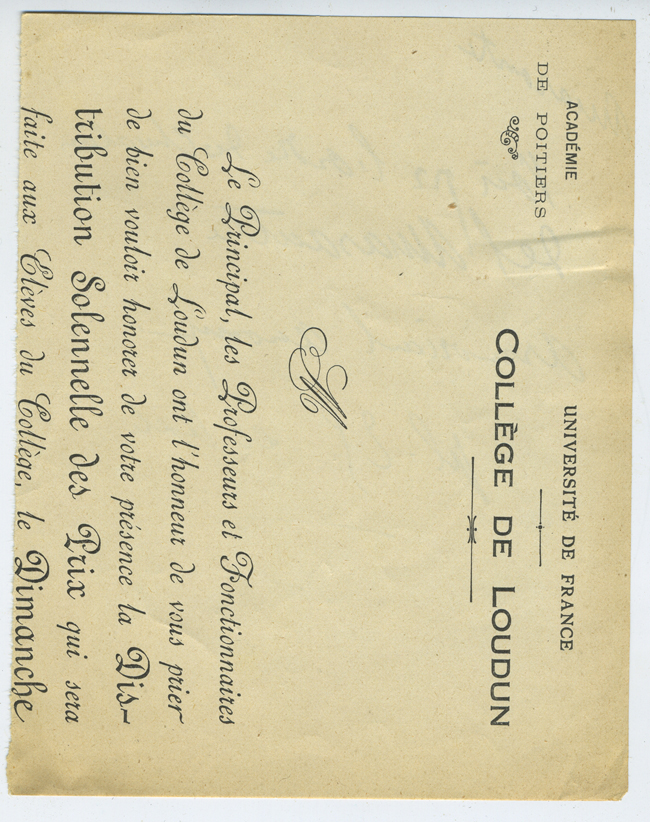 ACADÉMIE
DE POITIERS
UNIVERSITÉ DE FRANCE
COLLÈGE DE LOUDUN
M
Le Principal, les Professeurs et Fonctionnaires
du Collège de Loudun ont l'honneur de vous prier
de bien vouloir honorer de votre présence la Dis-
tribution Solennelle des Prix qui sera
faite aux Elèves du Collège, le Dimanche